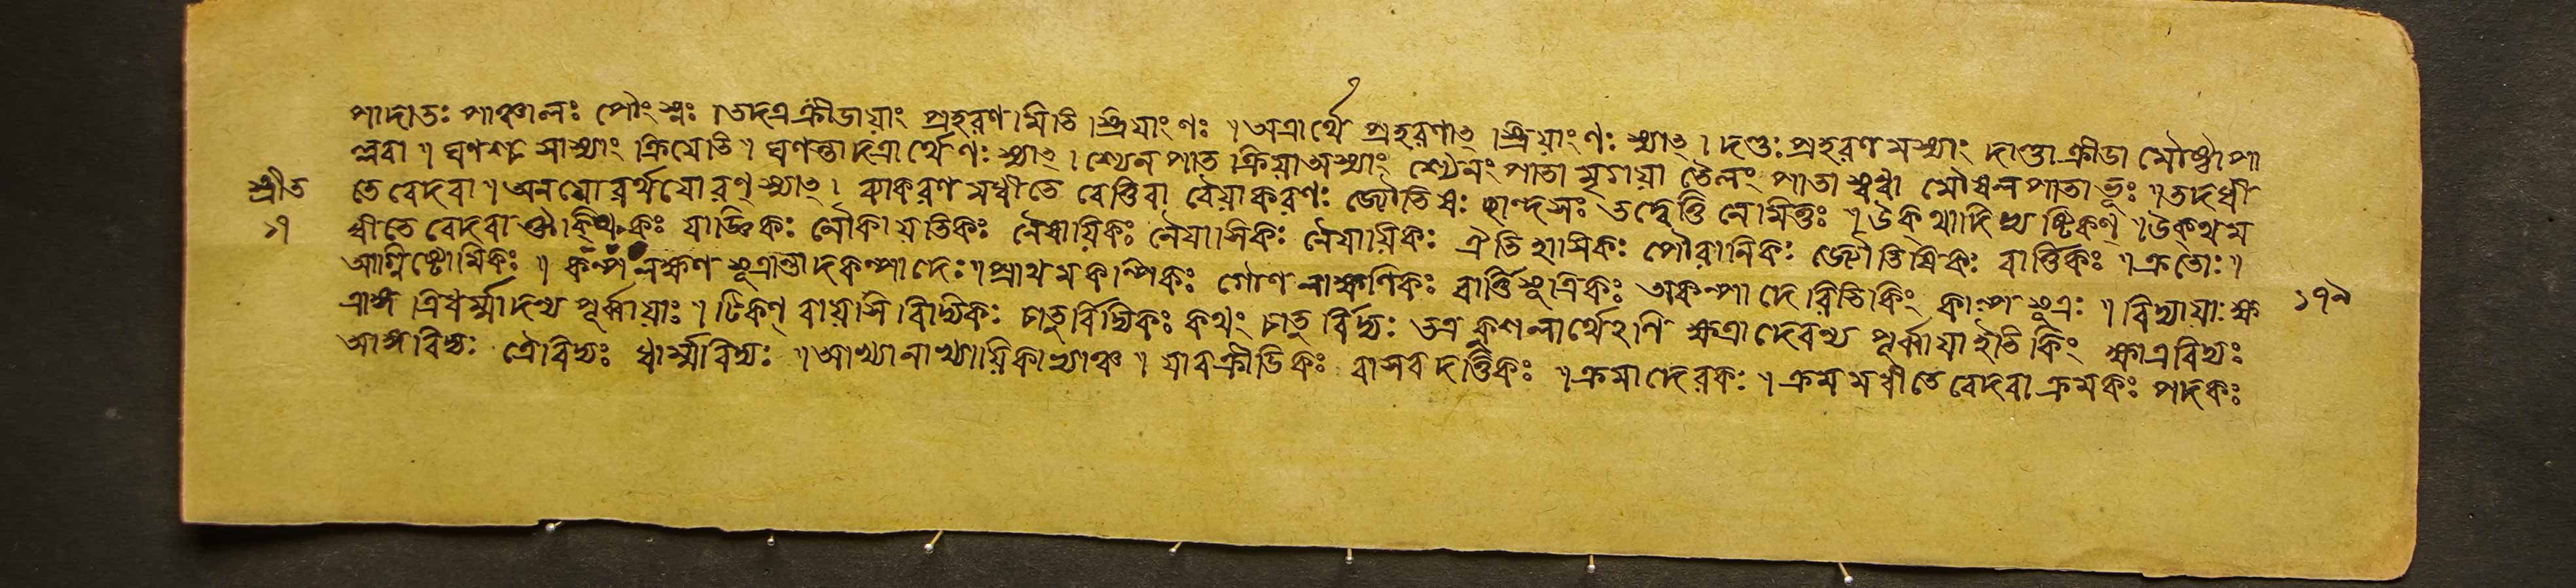 পাদাতঃ পাঞ্চালঃ পৌংস্নঃ ।তদত্রক্রীডায়াং প্রহরণমিতি স্ত্রিয়াংণঃ ॥ অত্রার্থে প্রহরণাৎ স্ত্রিয়াংণঃ স্যাৎ । দণ্ডঃপ্রহরণমস্যাং দাণ্ডা ক্রীডা মৌষ্টাপা
ল্লবা ॥ ঘণশ্চ সাস্যাং ক্রিয়েতি ॥ ঘণন্তাদত্রার্থে ণঃ স্যাৎ । শ্যেনপাত ক্রিয়াঅস্যাং শ্যৈনংপাতা মৃগয়া তৈলংপাতা স্বধা মৌষলপাতাভূঃ ॥তদধী
শ্রীত তে বেদবা ॥অনয়োরর্থয়োরণ্ স্যাৎ । ব্যাকরণমধীতে বেত্তিবা বৈয়াকরণঃ জ্যৌতিষঃ ছান্দসঃ তদ্বেত্তি নৈমিত্তঃ ॥ উক্থ্যাদিভ্যষ্টিকণ্ ॥উক্থম
১ ধীতে বেদবা ঔক্থিকঃ যাজ্ঞিকঃ লৌকায়তিকঃ নৈয়ায়িকঃ নৈয়াসিকঃ ঐতিহাসিকঃ পৌরানিকঃ জ্যৌতিষিকঃ বার্ত্তিকঃ ॥ক্রতোঃ॥
আগ্নিষ্টোমিকঃ ॥ কল্প লক্ষণ সূত্রান্তাদকল্পাদেঃ ॥প্রাথমকল্পিকঃ গৌণলাক্ষণিকঃ বার্ত্তিসূত্রিকঃ অকল্পাদেরিতিকিং কাল্পসূত্রঃ ॥ বিদ্যায়াঃক্ষ ১৭৯
ত্রাঙ্গ ত্রিধর্ম্মাদন্য পূর্ব্বায়াঃ ॥ টিকণ্ বায়সবিদ্যিকঃ চাতুর্বিদ্যিকঃ কথং চাতুর্বিদ্যঃ তত্রকুশলার্থেঽণি ক্ষত্রাদেরন্য পূর্ব্বায়াইতিকিং ক্ষাত্রবিদ্যঃ
আঙ্গবিদ্যঃ ত্রৈবিদ্যঃ ধার্ম্মবিদ্যঃ ॥আখ্যানাখ্যায়িকাভ্যাঞ্চ ॥ যাবক্রীতিকঃ বাসবদত্তিকঃ ॥ক্রমাদেরকঃ ॥ ক্রমমধীতে বেদবা ক্রমকঃ পদকঃ